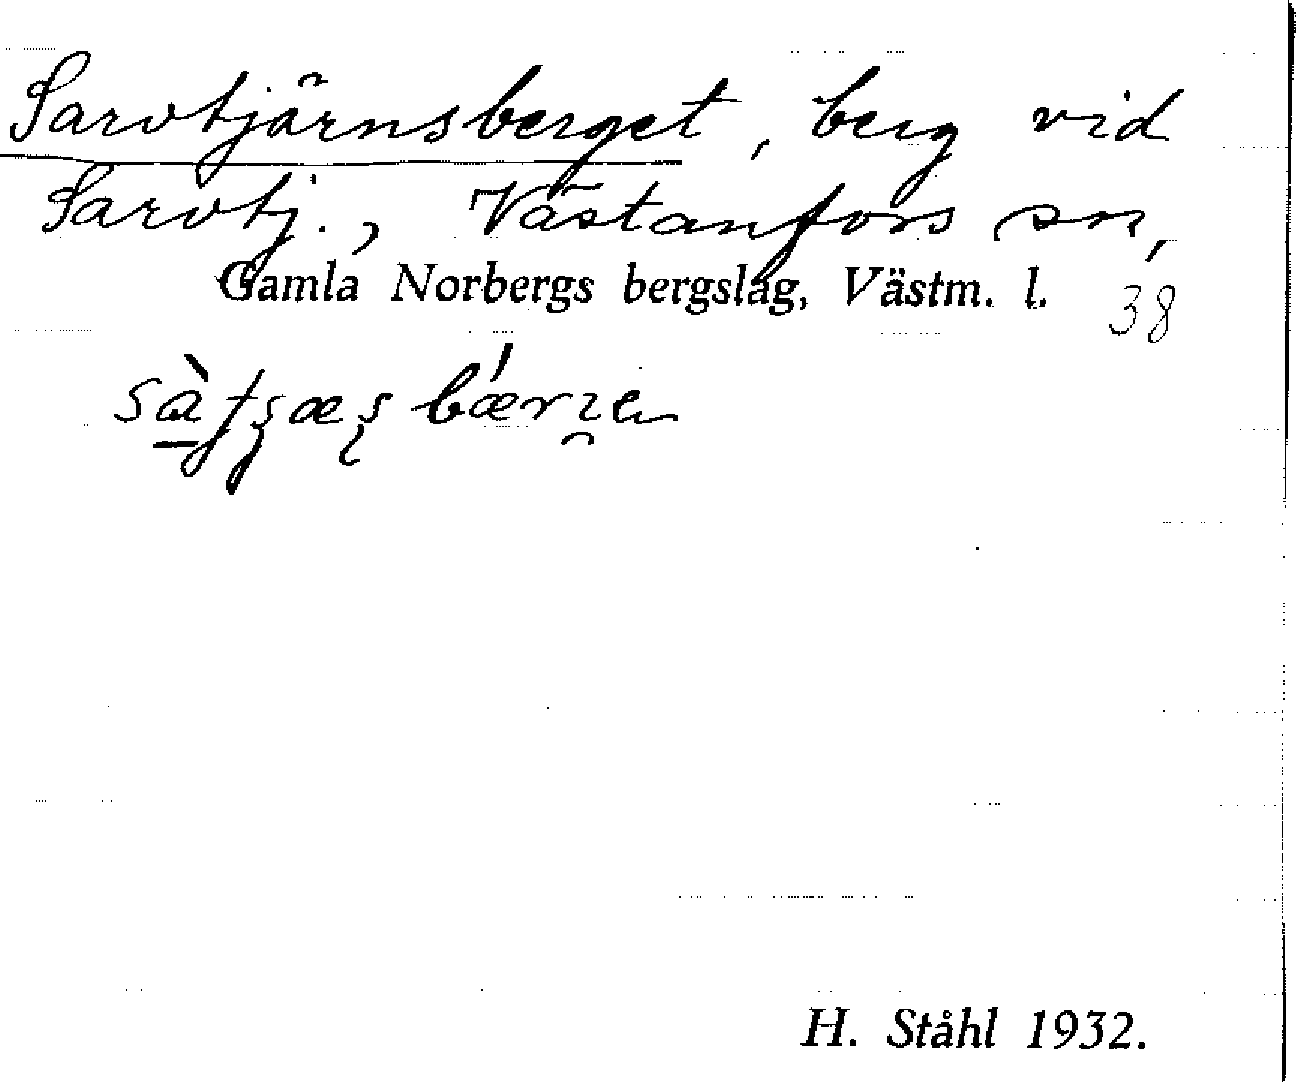 Sarvtjärnsberget, berg vid
Sarvtj., Västanfors sn,
Gamla Norbergs bergslag, Västm. l.
38
H. Ståhl 1932.